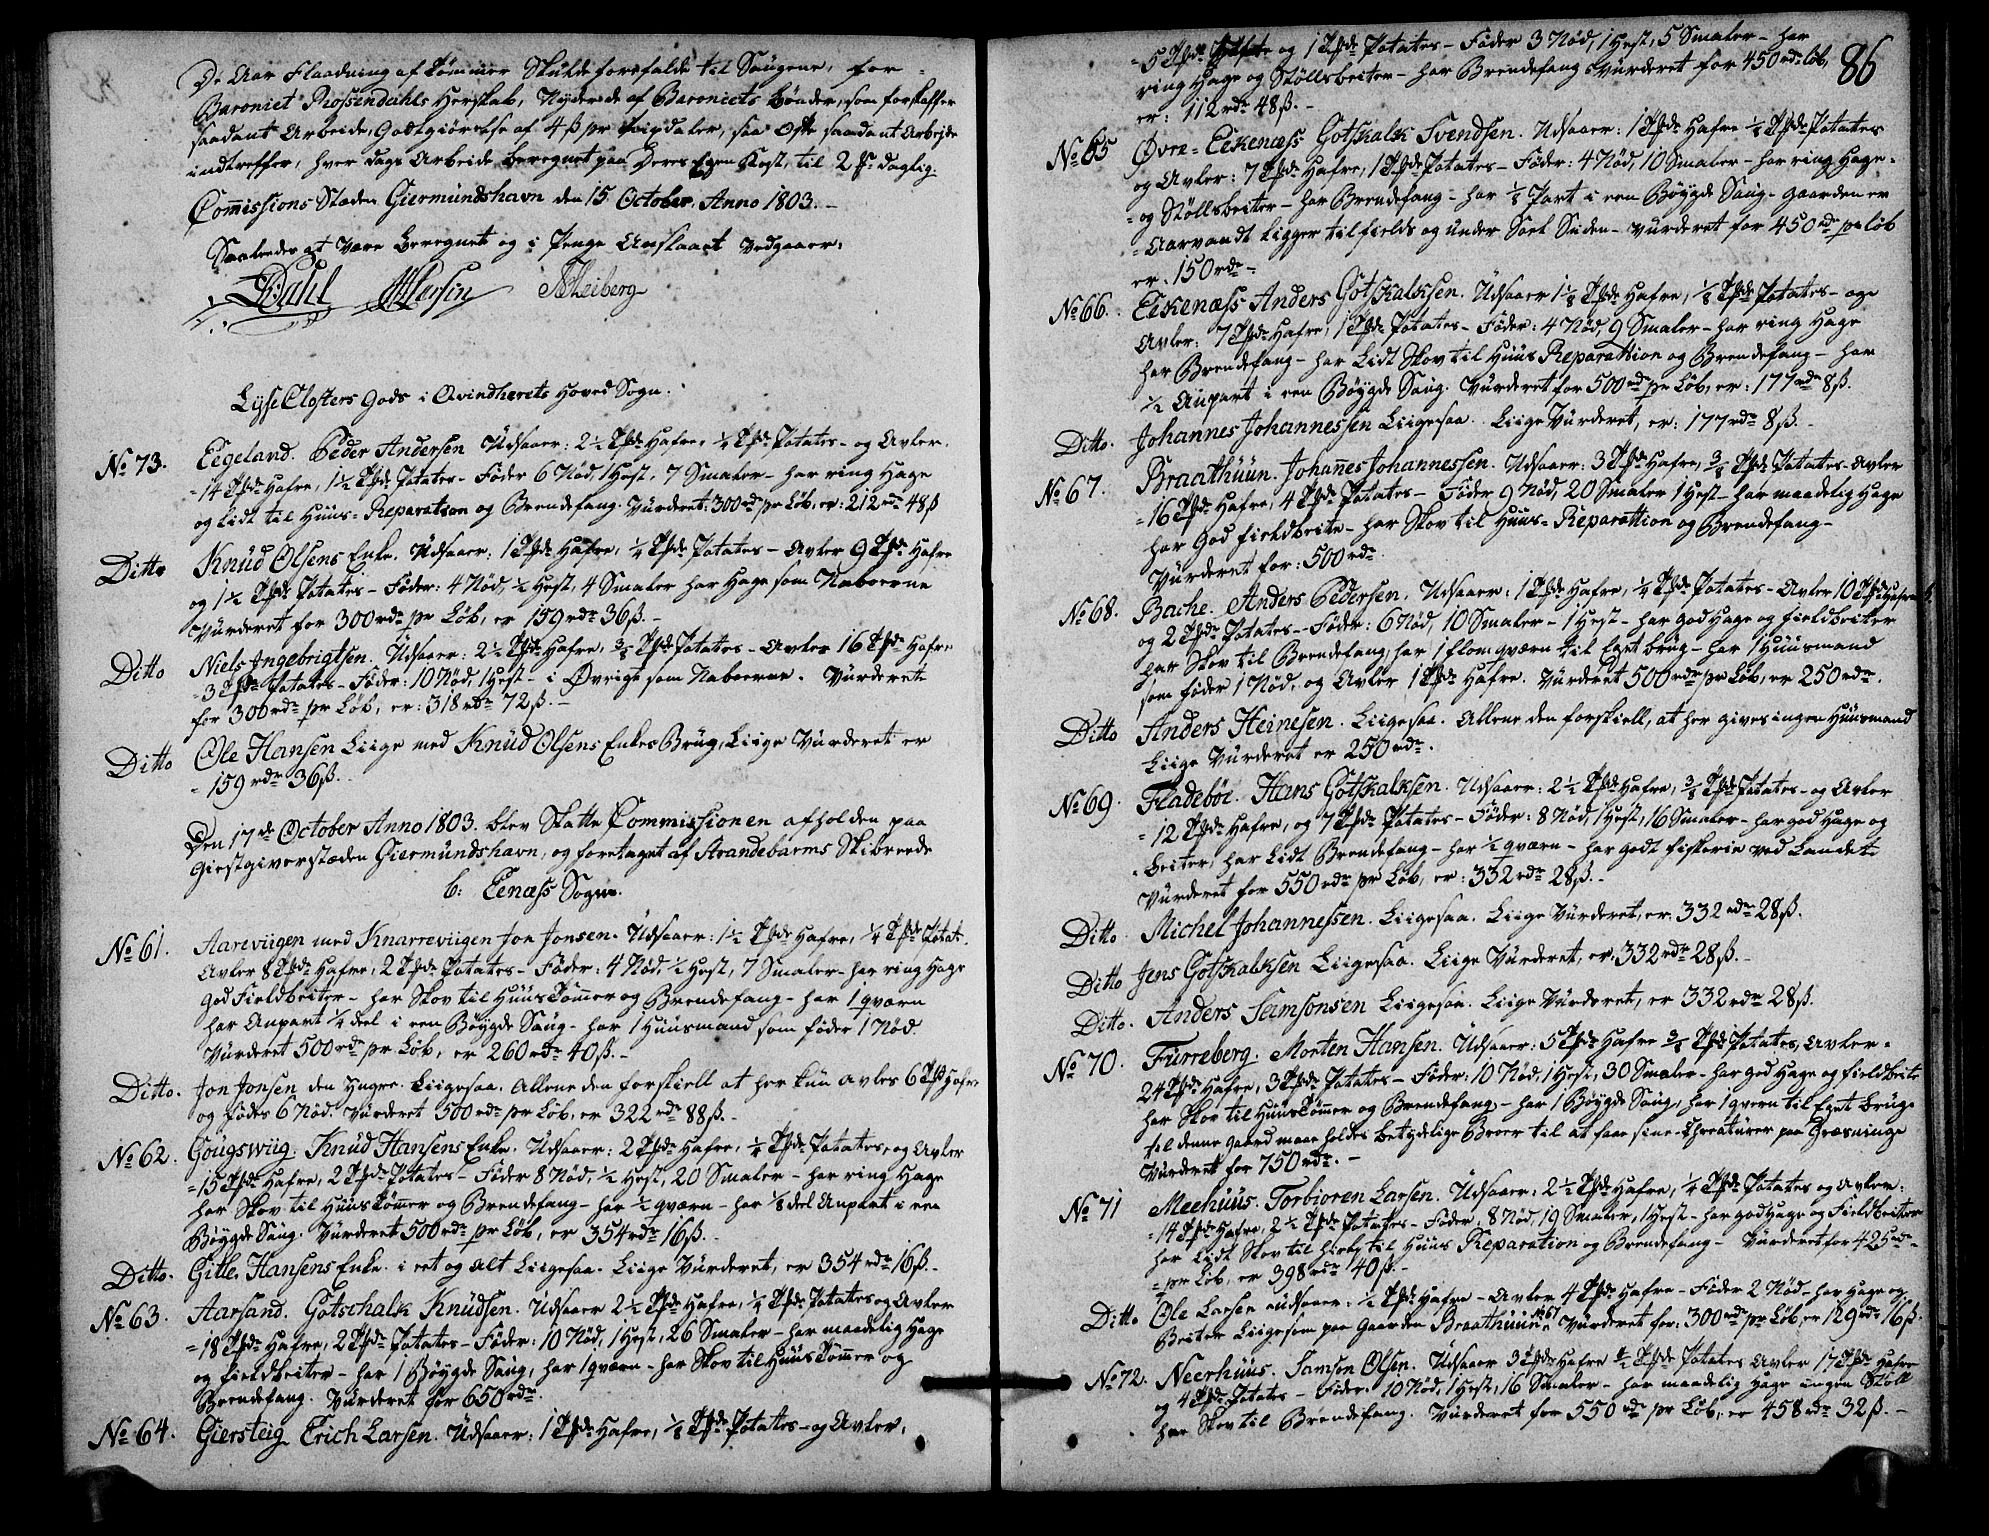 De Aar Flaadning af Tømmer Skulde forefalde til Saugene, for
Baroniet Rossendahls Herskab, Nyder de af Baroniets Bønder, som forskaffer
saadant Arbeide, Godtgiørelse af 4 ß pr Snipdaler, saa Ofte saadant Arbeide
indtreffer, hver dags Arbeide beregnet paa Deres Egen Kost, til 2 ß daglig.
Commissions Stæden Giermundshavn den 15 October Anno 1803.
Saaledes at være beregnet og i Penge Anslaaet Vedgaaer:
Dahl Meyer Heiberg
Lyse Closters Gods i Qvindherets Hoved Sogn.
No 73. Eegeland. Peder Andersen Udsaaer: 2 1/2 Tønde Hafre, 1/4 Tønde Potates - og Avler.
14 Tønde Hafre, 1 1/2 Tønde Potates - Føder 6 Nød, 1 Hest, 7 Smaler - har ring Hage
og Lidt til Huus-Reparation og Brendefang. Vurderet: 300 rdr pr Løb, er: 212 rdr 48 ß
Ditto Knud Olsens Enke. Udsaaer. 1 Tønde Hafre, 1/4 Tønde Potates - Avler 9 Tønde Hafre
og 1 1/2 Tønde Potates - Føder: 4 Nød, 1/2 Hest, 4 Smaler har Hage som Naboerne
Vurderet for 300 rdr pr Løb, er 159 rdr 36 ß. -
Ditto Niels Jngebrigtsen. Udsaaer: 2 1/2 Tønde Hafre, 3/8 Tønde Potates - Avler 16 Tønde Hafre
3 Tønde Potates - Føder: 10 Nød, 1 Hest - i Øvrigt som Naboerne. Vurderet
for 300 rdr pr Løb, er: 318 rdr 72 ß. -
Ditto Ole Hansen Liige med Knud Olsens Enkes Brug, Liige Vurderet er
159 rdr 36 ß.
Den 17de October Anno 1803. blev Skatte Commissionen afholden paa
Giestgiverstæden Giermundshavn, og foretaget af Strandebarms Skibreede
b: Eenæss Sogn.
No 61. Aarevigen med Knarrevigen Jon Jonsen. Udsaaer: 1 1/2 Tønde Hafre, 1/4 Tønde Potat.
Avler 8 Tønde Hafre, 2 Tønde Potates - Føder: 4 Nød, 1/2 Hest, 7 Smaler - har ring Hage
god Fieldbeiter - har Skov til Huus Tømmer og Brendefang - har 1 qværn
har Anpart 1/4 deel i een Bøygde Saug - har 1 Huusmand som føder 1 Nød.
Vurderet 500 rdr pr Løb, er 260 rdr 40 ß. -
Ditto. Jon Jonsen den Yngre. Liigesaa. Allene den forskiell at her kun avles 6 Tønde Hafre
og fødes 6 Nød. Vurderet 500 rdr pr Løb, er 322 rdr 88 ß. -
No 62. Gougswiig. Knud Hansens Enke. Udsaaer: 2 Tønde Hafre, 1/4 Tønde Potates, og Avler
15 Tønde Hafre, 2 Tønde Potates - Føder 8 Nød, 1/2 Hest, 20 Smaler - har ring Hage
har Skov til Huus Tømmer og Brendefang - har 1/2 qværn - har 1/8 deel Anpart i een
Bøygde Saug. Vurderet 500 rdr pr Løb, er 354 rdr 16 ß. -
Ditto. Gitle Hansens Enke. i eet og alt Liigesaa. Liige Vurderet, er 354 rdr 16 ß. -
No 63. Aarsand. Gotschalk Knudsen. Udsaaer 2 1/2 Tønde Hafre, 1/4 Tønde Potates og Avler
18 Tønde Hafre, 2 Tønde Potates - Føder: 10 Nød, 1 Hest, 26 Smaler - har maadelig Hage
og fieldbeiter - har 1 Bøygde Saug, har 1 qværn - har Skov til Huus Tømmer og
Brendefang. Vurderet for 650 rdr.
No 64. Giersteig Erich Larsen. Udsaaer: 1 Tønde Hafre, 1/8 Tønde Potates - og Avler,
86
5 Tønde Hafre og 1 Tønde Potates - Føder 3 Nød, 1 Hest, 5 Smaler - har
ring Hage og Støllsbeiter - har Brendefang Vurderet for 450 rdr Løb,
er: 112 rdr 48 ß. -
No 65 Øvre-Eekenæss Gotskalk Svendsen. Udsaaer: 1 Tønde Hafre 1/8 Tønde Potates
og Avler: 7 Tønde Hafre, 1 Tønde Potates - Føder: 4 Nød, 10 Smaler - har ring Hage
og Støllsbeiter - har Brendefang - har 1/8 Part i een Bøygde Saug - Gaarden er
Aarvandt ligger tilfields og under Soel Siden - Vurderet for 450 rdr pr Løb
er: 150 rdr -
No 66. Eekenæss Anders Gotskalksen. Udsaaer 1 1/8 Tønde Hafre, 1/8 Tønde Potates - og
Avler: 7 Tønde Hafre, 1 Tønde Potates - Føder: 4 Nød, 9 Smaler - har ring Hage
har Brendefang - har Lidt Skov til Huus Reparation og Brendefang - har
1/2 Anpart i een Bøygde Saug. Vurderet for 500 rdr pr Løb, er: 177 rdr 8 ß.
Ditto. Johannes Johannessen Liigesaa. Liige Vurderet, er: 177 rdr 8 ß. -
No 67. Braathuun. Johannes Johannessen. Udsaaer: 3 Tønde Hafre, 3/8 Tønde Potates - Avler
16 Tønde Hafre, 4 Tønde Potates - Føder 9 Nød, 20 Smaler 1 Hest - har maadelig Hage
har god fieldbeite - har Skov til Huus-Reparation og Brendefang -
Vurderet for: 500 rdr.
No 68. Bache. Anders Pedersen. Udsaaer: 1 Tønde Hafre, 1/4 Tønde Potates - Avler 10 Tønde Hafre
og 2 Tønde Potates - Føder: 6 Nød, 10 Smaler - 1 Hest - har god Hage og fieldbeiter
har Skov til Brendefang, har 1 flomqværn til Eget brug - har 1 Huusmand
som føder 1 Nød, og Avler 1 Tønde Hafre. Vurderet 500 rdr pr Løb, er 250 rdr.
Ditto Anders Heinesen. Liigesaa. Allene den forskiell, at her gives ingen Huusmand
Liige Vurderet er 250 rdr.
No 69. Fladebøe. Hans Gotskalksen. Udsaaer: 2 1/2 Tønde Hafre, 3/8 Tønde Potates - og Avler
12 Tønde Hafre, og 7 Tønde Potates - Føder: 8 Nød, 1 Hest, 16 Smaler - har god Hage og
Beiter, har Lidt Brendefang - har 1/2 qværn - har godt fiskerie ved Landet
Vurderet for 550 rdr pr Løb, er: 332 rdr 28 ß. -
Ditto. Michel Johannessen. Liigesaa. Liige Vurderet, er 332 rdr 28 ß.
Ditto Jens Gotskalksen Liigesaa. Liige Vurderet, er 332 rdr 28 ß. -
Ditto. Anders Samsonsen Liigesaa. Liige Vurderet, er 332 rdr 28 ß.
No 70. Furreberg. Morten Hansen. Udsaaer: 5 Tønde Hafre 3/8 Tønde Potates, Avler
24 Tønde Hafre, 3 Tønde Potates - Føder: 10 Nød, 1 Hest, 30 Smaler - har god Hage og fieldbeite
har Skov til Huus Tømmer og Brendefang - har 1 Bøygde Saug, har 1 qvern til Eget brug.
til denne Gaard maae holdes betydelige Broer til at faae sine Chreaturer paa Græsninge
Vurderet for 750 rdr. -
No 71 Meehuus. Torbioren Larsen. Udsaaer: 2 1/2 Tønde Hafre, 1/4 Tønde Potates og Avler:
14 Tønde Hafre, 2 1/2 Tønde Potates - Føder: 8 Nød, 19 Smaler, 1 Hest - har god Hage og Fieldbeiter
har Lidt Skov til hielp til Huus Reparation og Brendefang - Vurderet for 425 rdr
pr Løb, er 398 rdr 40 ß. -
Ditto Ole Larsen udsaaer: 1/2 Tønde Hafre - Avler 4 Tønde Hafre - Føder 2 Nød - har Hage og
Beiter Liigesom paa Gaarden Braathuun No 67. Vurderet for: 300 rdr pr Løb, er 129 rdr 16 ß.
No 72. Neerhuus. Samson Olsen. Udsaaer 3 Tønde Hafre 1/2 Tønde Potates Avler 17 Tønde Hafre
og 4 Tønde Potates - Føder: 10 Nød, 1 Hest, 16 Smaler - har maadelig Hage ingen Støll
har Skov til Brendefang. Vurderet for 550 rdr pr Løb, er 458 rdr 32 ß. -